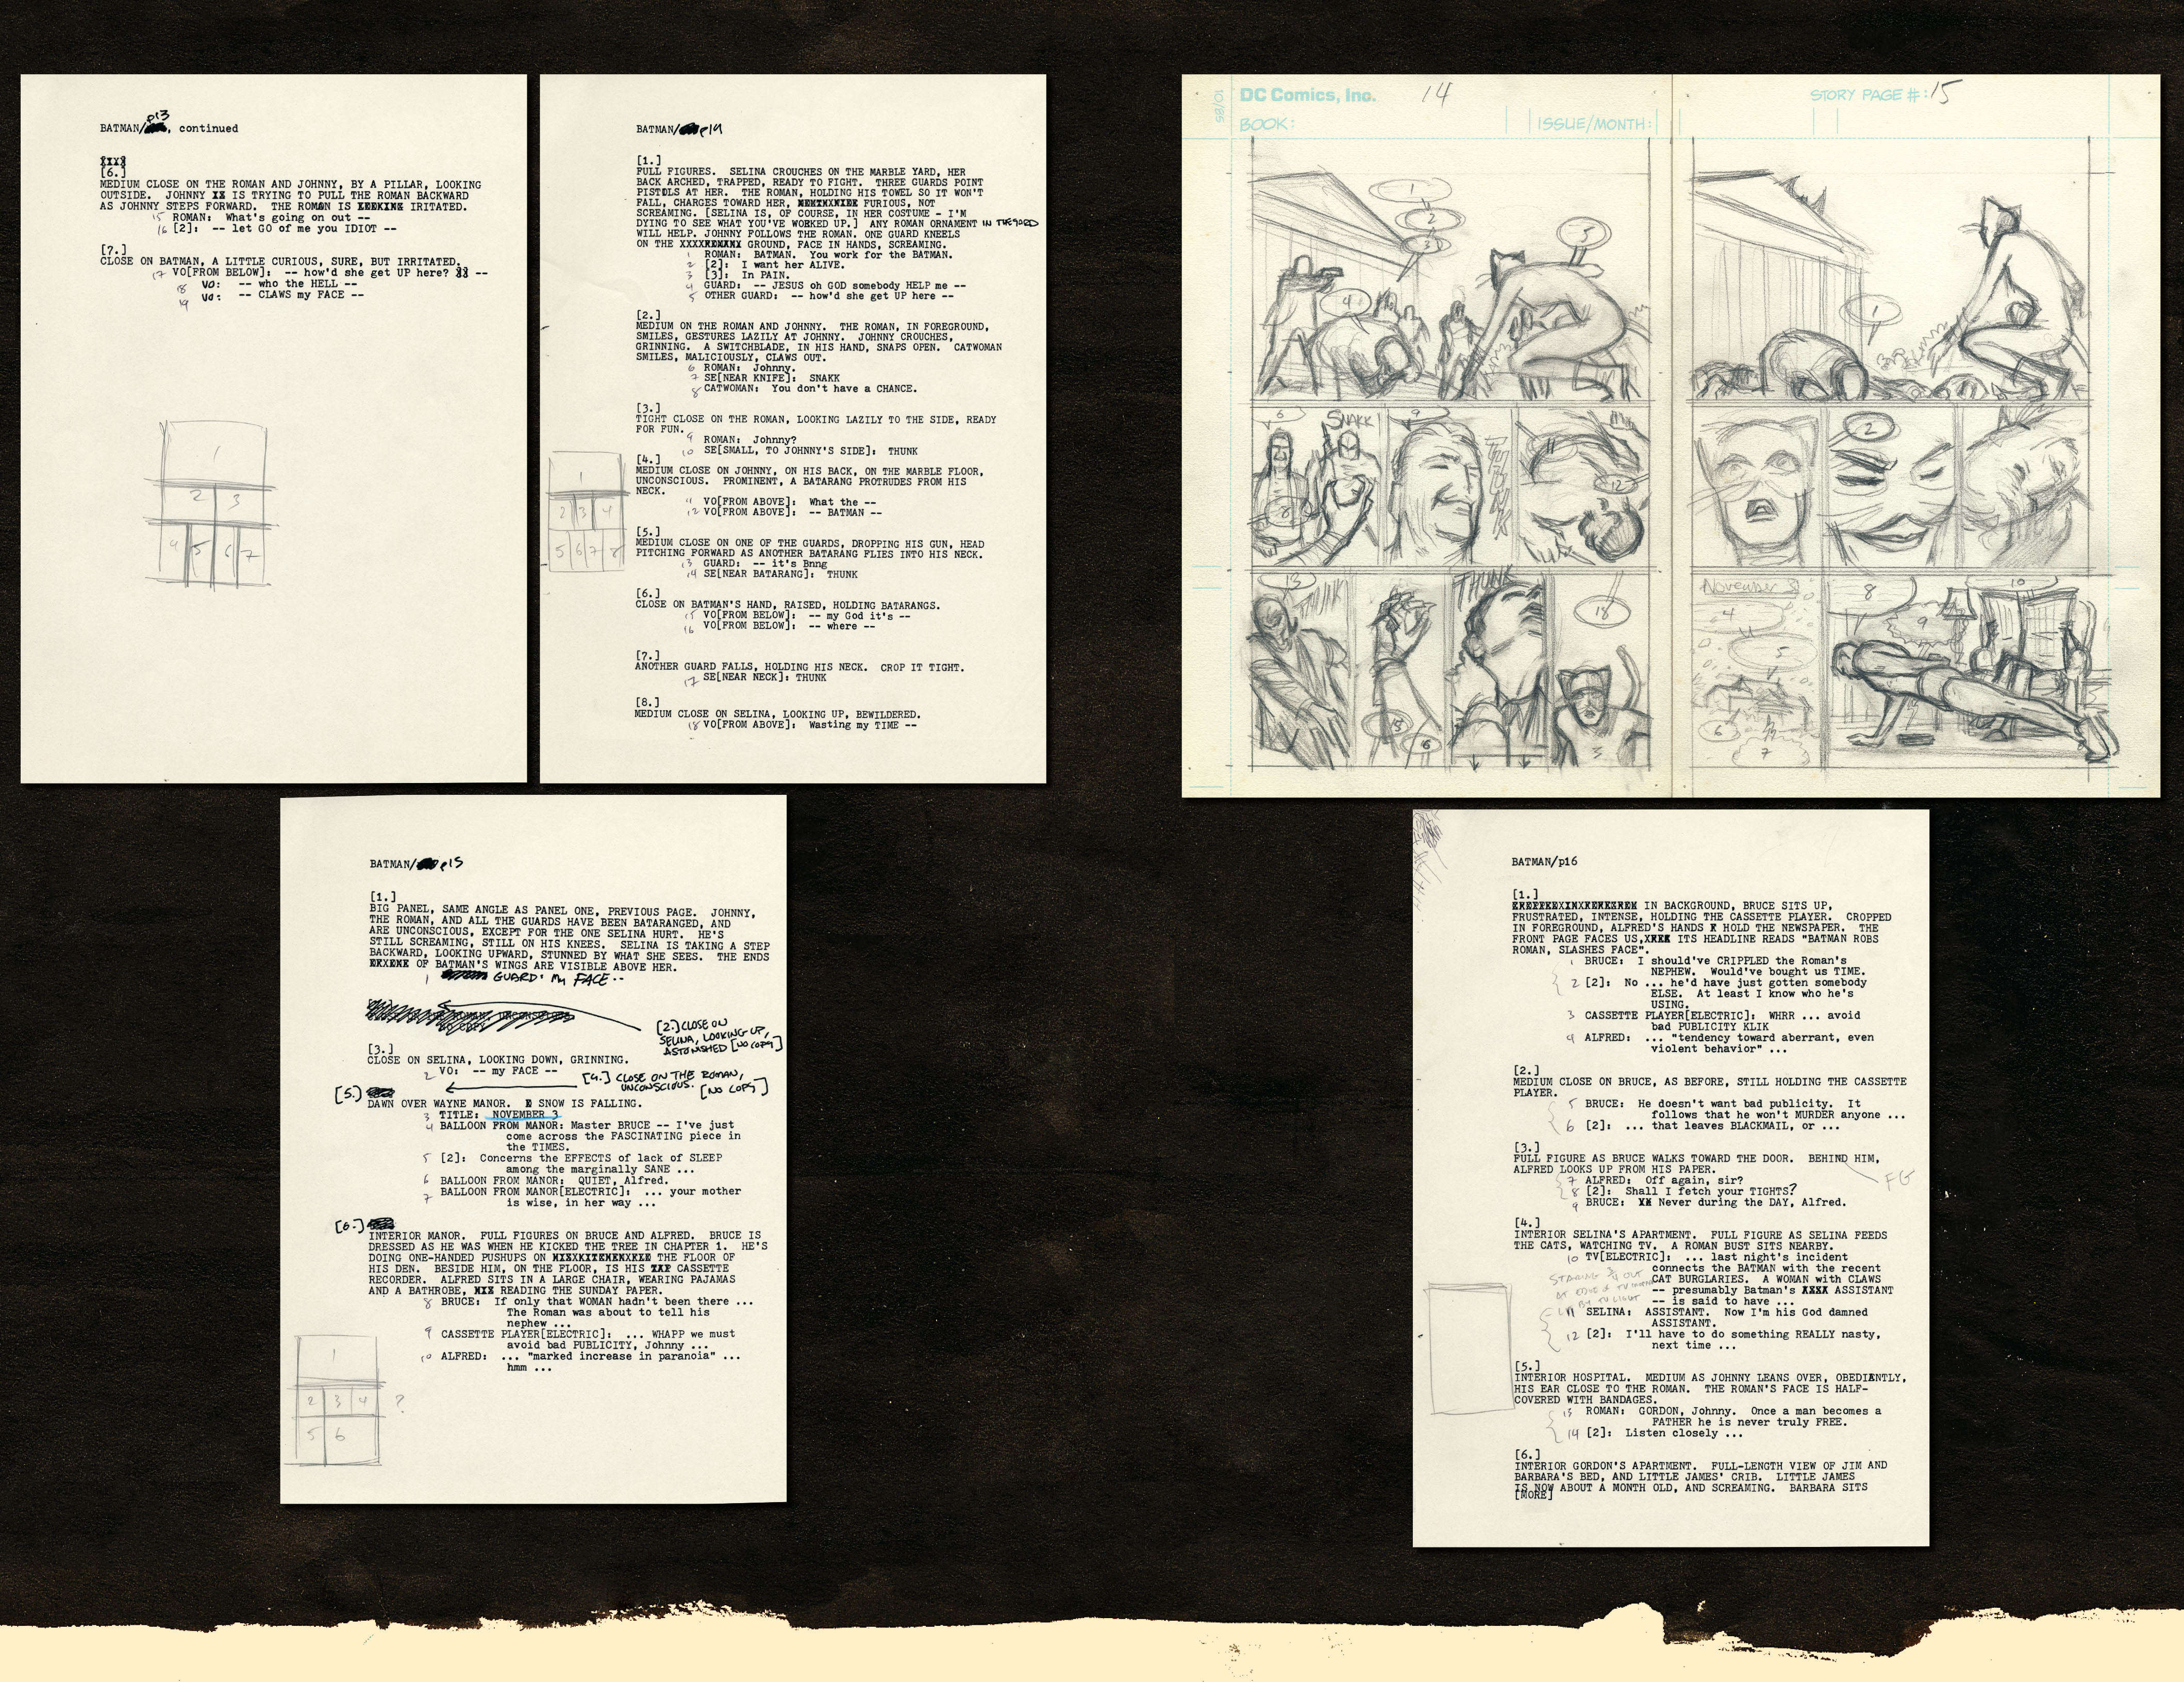 BATMAN/p13, continued
[6.]
MEDIUM CLOSE ON THE ROMAN AND JOHNNY, BY A PILLAR, LOOKING
OUTSIDE. JOHNNY IS TRYING TO PULL THE ROMAN BACKWARD
AS JOHNNY STEPS FORWARD. THE ROMAN IS IRRITATED.
15 ROMAN: What's going on out --
16 [2]: -- let GO of me you IDIOT --
[7.]
CLOSE ON BATMAN, A LITTLE CURIOUS, SURE, BUT IRRITATED.
17 VO[FROM BELOW]: -- how'd she get UP here? --
18 VO: -- who the HELL --
19 VO: -- CLAWS my FACE --
1
2 3
4 5 6 7
BATMAN/p14
[1.]
FULL FIGURES. SELINA CROUCHES ON THE MARBLE YARD, HER
BACK ARCHED, TRAPPED, READY TO FIGHT. THREE GUARDS POINT
PISTOLS AT HER. THE ROMAN, HOLDING HIS TOWEL SO IT WON'T
FALL, CHARGES TOWARD HER, FURIOUS, NOT
SCREAMING. [SELINA IS, OF COURSE, IN HER COSTUME - I'M
DYING TO SEE WHAT YOU'VE WORKED UP.] ANY ROMAN ORNAMENT IN THE YARD
WILL HELP. JOHNNY FOLLOWS THE ROMAN. ONE GUARD KNEELS
ON THE GROUND, FACE IN HANDS, SCREAMING.
1 ROMAN: BATMAN. You work for the BATMAN.
2 [2]: I want her ALIVE.
3 [3]: In PAIN.
4 GUARD: -- JESUS oh GOD somebody HELP me --
5 OTHER GUARD: -- how'd she get UP here --
[2.]
MEDIUM ON THE ROMAN AND JOHNNY. THE ROMAN, IN FOREGROUND,
SMILES, GESTURES LAZILY AT JOHNNY. JOHNNY CROUCHES,
GRINNING. A SWITCHBLADE, IN HIS HAND, SNAPS OPEN. CATWOMAN
SMILES, MALICIOUSLY, CLAWS OUT.
6 ROMAN: Johnny.
7 SE[NEAR KNIFE]: SNAKK
8 CATWOMAN: You don't have a CHANCE.
[3.]
TIGHT CLOSE ON THE ROMAN, LOOKING LAZILY TO THE SIDE, READY
FOR FUN.
9 ROMAN: Johnny?
10 SE[SMALL, TO JOHNNY'S SIDE]: THUNK
[4.]
MEDIUM CLOSE ON JOHNNY, ON HIS BACK, ON THE MARBLE FLOOR,
UNCONSCIOUS. PROMINENT, A BATARANG PROTRUDES FROM HIS
NECK.
11 VO[FROM ABOVE]: What the --
12 VO[FROM ABOVE]: -- BATMAN --
[5.]
MEDIUM CLOSE ON ONE OF THE GUARDS, DROPPING HIS GUN, HEAD
PITCHING FORWARD AS ANOTHER BATARANG FLIES INTO HIS NECK.
13 GUARD: -- it's Bnng
14 SE[NEAR BATARANG]: THUNK
[6.]
CLOSE ON BATMAN'S HAND, RAISED, HOLDING BATARANGS.
15 VO[FROM BELOW]: -- my God it's --
16 VO[FROM BELOW]: -- where --
[7.]
ANOTHER GUARD FALLS, HOLDING HIS NECK. CROP IT TIGHT.
17 SE[NEAR NECK]: THUNK
[8.]
MEDIUM CLOSE ON SELINA, LOOKING UP, BEWILDERED.
18 VO[FROM ABOVE]: Wasting my TIME --
1
2 3 4
5 6 7 8
10/85
DC Comics, Inc. 14
BOOK:
ISSUE/MONTH:
STORY PAGE #: 15
1
2
3
4
5
6
SNAKK!
8
9
THUNK
11
12
13
THUNK
15
16
THUNK
18
1
2
November 3
4
5
6
7
8
9
10
BATMAN/p15
[1.]
BIG PANEL, SAME ANGLE AS PANEL ONE, PREVIOUS PAGE. JOHNNY,
THE ROMAN, AND ALL THE GUARDS HAVE BEEN BATARANGED, AND
ARE UNCONSCIOUS, EXCEPT FOR THE ONE SELINA HURT. HE'S
STILL SCREAMING, STILL ON HIS KNEES. SELINA IS TAKING A STEP
BACKWARD, LOOKING UPWARD, STUNNED BY WHAT SHE SEES. THE ENDS
OF BATMAN'S WINGS ARE VISIBLE ABOVE HER.
1 GUARD: MY FACE--
[2.] CLOSE ON
SELINA, LOOKING UP,
ASTONISHED [NO COPY]
[3.]
CLOSE ON SELINA, LOOKING DOWN, GRINNING.
2 VO: -- my FACE --
[4.] CLOSE ON THE ROMAN,
UNCONSCIOUS. [NO COPY]
[5.]
DAWN OVER WAYNE MANOR. SNOW IS FALLING.
3 TITLE: NOVEMBER 3
4 BALLOON FROM MANOR: Master BRUCE -- I've just
come across the FASCINATING piece in
the TIMES.
5 [2]: Concerns the EFFECTS of lack of SLEEP
among the marginally SANE ...
6 BALLOON FROM MANOR: QUIET, Alfred.
7 BALLOON FROM MANOR[ELECTRIC]: ... your mother
is wise, in her way ...
[6.]
INTERIOR MANOR. FULL FIGURES ON BRUCE AND ALFRED. BRUCE IS
DRESSED AS HE WAS WHEN HE KICKED THE TREE IN CHAPTER 1. HE'S
DOING ONE-HANDED PUSHUPS ON THE FLOOR OF
HIS DEN. BESIDE HIM, ON THE FLOOR, IS HIS CASSETTE
RECORDER. ALFRED SITS IN A LARGE CHAIR, WEARING PAJAMAS
AND A BATHROBE, READING THE SUNDAY PAPER.
8 BRUCE: If only that WOMAN hadn't been there ...
The Roman was about to tell his
nephew ...
9 CASSETTE PLAYER[ELECTRIC]: ... WHAPP we must
avoid bad PUBLICITY, Johnny ...
10 ALFRED: ... "marked increase in paranoia" ...
hmm ...
1
2 3 4 ?
5 6
BATMAN/p16
[1.]
IN BACKGROUND, BRUCE SITS UP,
FRUSTRATED, INTENSE, HOLDING THE CASSETTE PLAYER. CROPPED
IN FOREGROUND, ALFRED'S HANDS HOLD THE NEWSPAPER. THE
FRONT PAGE FACES US, ITS HEADLINE READS "BATMAN ROBS
ROMAN, SLASHES FACE".
1 BRUCE: I should've CRIPPLED the Roman's
NEPHEW. Would've bought us TIME.
2 [2]: No ... he'd have just gotten somebody
ELSE. At least I know who he's
USING.
3 CASSETTE PLAYER[ELECTRIC]: WHRR ... avoid
bad PUBLICITY KLIK
4 ALFRED: ... "tendency toward aberrant, even
violent behavior" ...
[2.]
MEDIUM CLOSE ON BRUCE, AS BEFORE, STILL HOLDING THE CASSETTE
PLAYER.
5 BRUCE: He doesn't want bad publicity. It
follows that he won't MURDER anyone ...
6 [2]: ... that leaves BLACKMAIL, or ...
[3.]
FULL FIGURE AS BRUCE WALKS TOWARD THE DOOR. BEHIND HIM,
ALFRED LOOKS UP FROM HIS PAPER.
FG
7 ALFRED: Off again, sir?
8 [2]: Shall I fetch your TIGHTS?
9 BRUCE: Never during the DAY, Alfred.
[4.]
INTERIOR SELINA'S APARTMENT. FULL FIGURE AS SELINA FEEDS
THE CATS, WATCHING TV. A ROMAN BUST SITS NEARBY.
10 TV[ELECTRIC]: ... last night's incident
connects the BATMAN with the recent
CAT BURGLARIES. A WOMAN with CLAWS
-- presumably Batman's ASSISTANT
-- is said to have ...
STARING 3/4 OUT
AT EDGE OF TV
LIT BY TV LIGHT
11 SELINA: ASSISTANT. Now I'm his God damned
ASSISTANT.
12 [2]: I'll have to do something REALLY nasty,
next time ...
[5.]
INTERIOR HOSPITAL. MEDIUM AS JOHNNY LEANS OVER, OBEDIENTLY,
HIS EAR CLOSE TO THE ROMAN. THE ROMAN'S FACE IS HALF-
COVERED WITH BANDAGES.
13 ROMAN: GORDON, Johnny. Once a man becomes a
FATHER he is never truly FREE.
14 [2]: Listen closely ...
[6.]
INTERIOR GORDON'S APARTMENT. FULL-LENGTH VIEW OF JIM AND
BARBARA'S BED, AND LITTLE JAMES' CRIB. LITTLE JAMES
IS NOW ABOUT A MONTH OLD, AND SCREAMING. BARBARA SITS
[MORE]